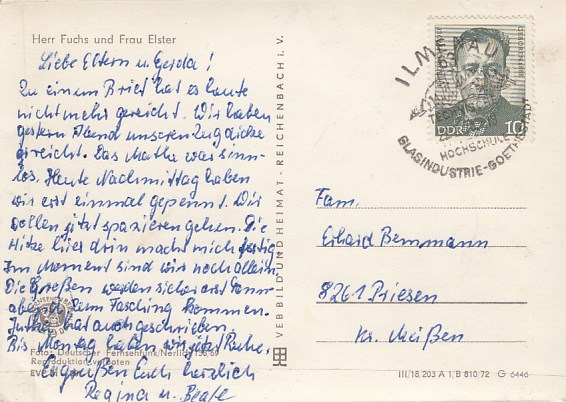 Herr Fuchs und Frau Elster
Liebe Eltern u. Gerda!
Zu einem Brief hat es heute
nicht mehr gereicht. Wir haben
gestern Abend unseren Zug dicke
erreicht. Das Mathe war sinn-
los. Heute Nachmittag haben
wir erst einmal gepennt. Wir
wollen jetzt spazierengehen. Die
Hitze hier drin macht mich fertig
Im Moment sind wir noch allein.
Die Großen werden sicher erst Sonn-
abend zum Fasching kommen.
hat auch geschrieben.
Bis Montag haben wir jetzt Ruhe.
Foto: Deutscher Fernsehfunk/Nerlich
Reproduktion verboten
EVP
Es grüßen Euch herzlich
Regina u. Beate
VEB BILD UND HEIMAT · REICHENBACH i. V.
ILMENAU
TECHNISCHE
HOCHSCHULE
GLASINDUSTRIE-GOETHESTADT
DDR 10
Fam.
Erhard Bemmann
8261 Priesen
Kr. Meißen
III/18/203 A 1, B 810/72 G 6446